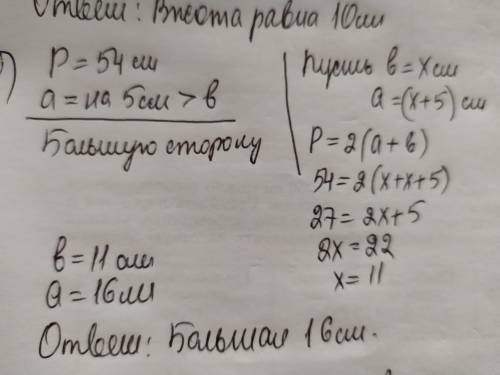 Ответ: Высота равна 10см
P = 54 см
a = на 5см > в
Большую сторону
Пусть в = x см
a = (x+5) см
P = 2(a+в)
54 = 2(x+x+5)
27 = 2x+5
2x = 22
x = 11
в = 11 см
a = 16см
Ответ: Большая 16см.